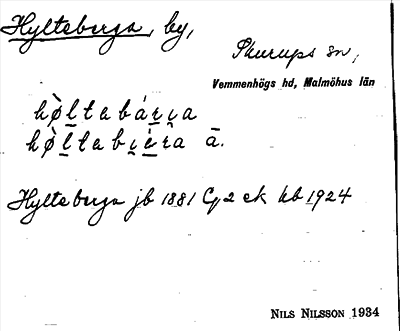 Hylteberga, by,
Skurups sn,
Vemmenhögs hd, Malmöhus län
hø̀ltabárı̯a
hø̀ltabı̯èra ā.
Hylteberga jb 1881 C, 2 ek kb 1924
NILS NILSSON 1934